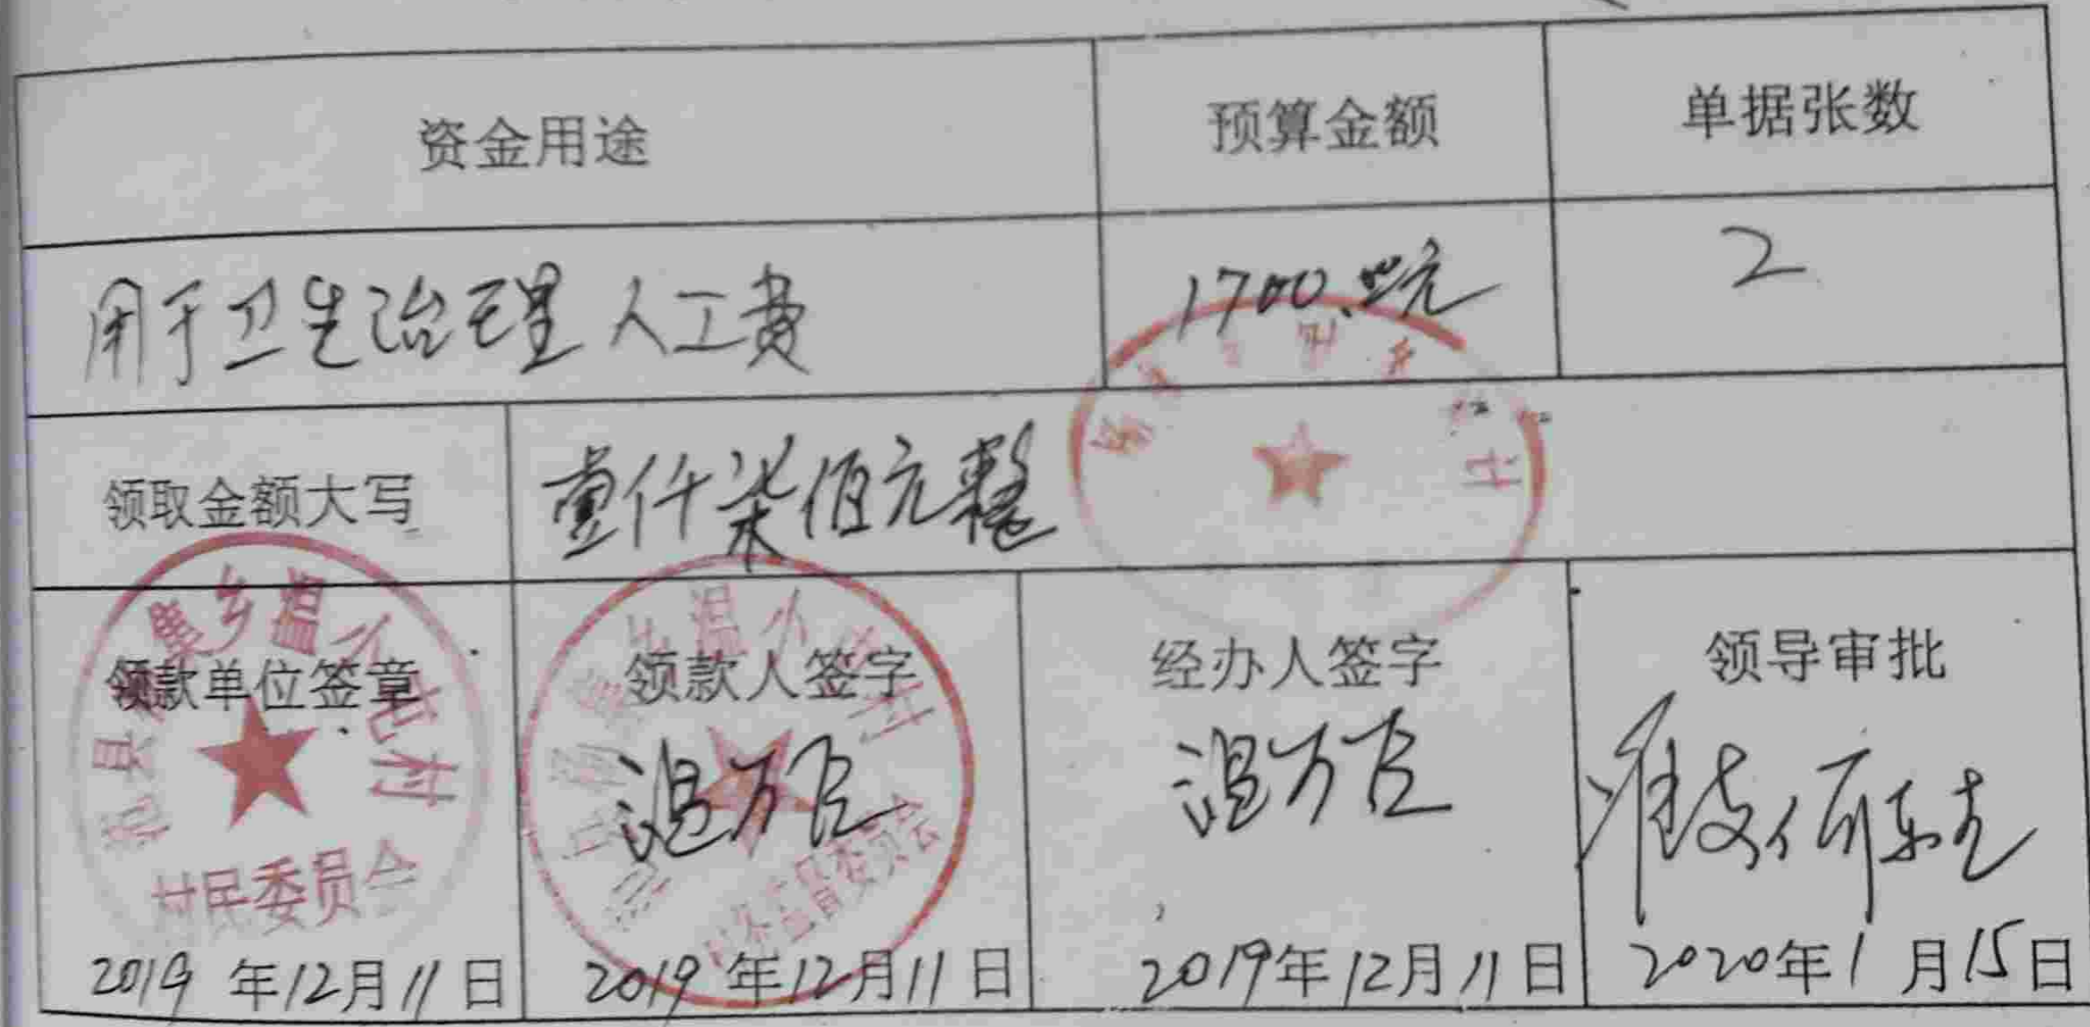 资金用途 预算金额 单据张数
用于卫生治理人工费 1700.00元 2
领取金额大写 壹仟柒佰元整
领款单位签章 领款人签字 经办人签字 领导审批
温万臣 温万臣 准支
村民委员会
2019年12月11日 2019年12月11日 2019年12月11日 2020年1月15日